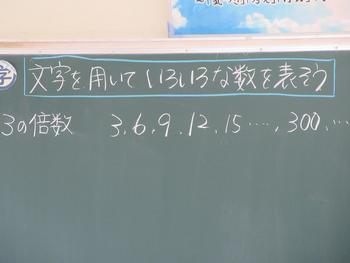 字
文字を用いていろいろな数を表そう
3の倍数 3, 6, 9, 12, 15 ‥‥, 300, ‥